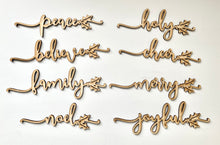 peace
believe
family
noel
holy
cheer
merry
joyful